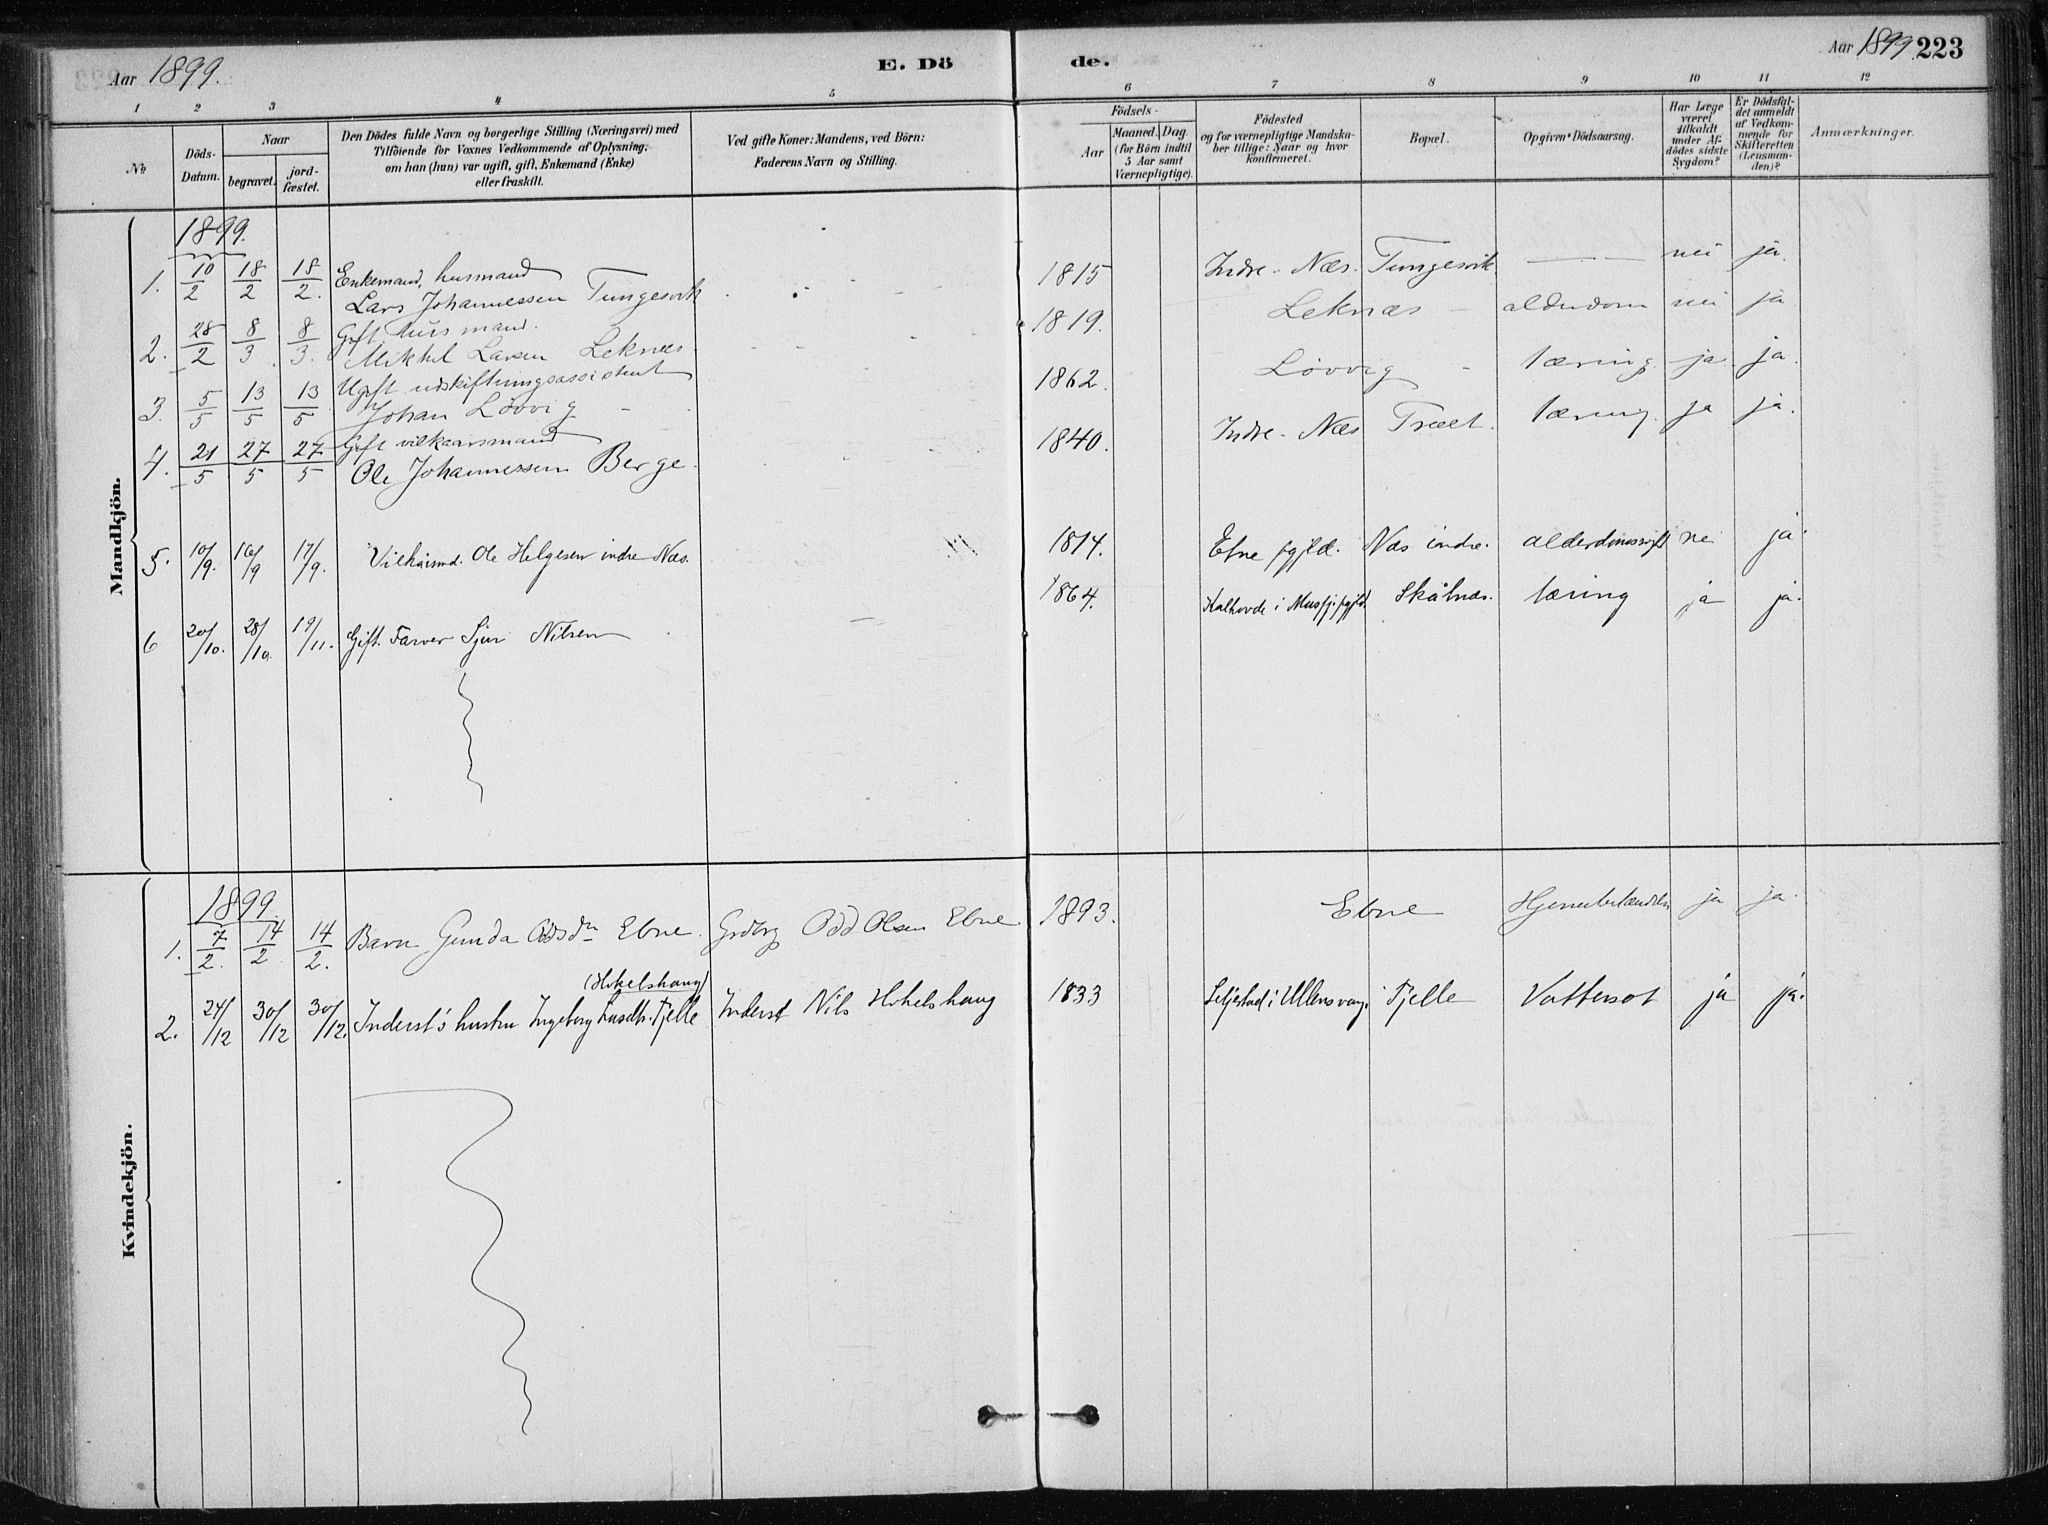 Aar 1899.
E. Dö
de.
Aar 1899. 223
1 2 3 4 5 6 7 8 9 10 11 12
No
Döds-Datum.
Naar
begravet.
jord-fæstet.
Den Dödes fulde Navn og borgerlige Stilling (Næringsvei) med
Tilföiende for Voxnes Vedkommende af Oplysning,
om han (hun) var ugift, gift, Enkemand (Enke)
eller fraskilt.
Ved gifte Koner: Mandens, ved Börn:
Faderens Navn og Stilling.
Födsels-
Aar
Maaned. Dag.
(for Börn indtil
5 Aar samt
Værnepligtige).
Födested
og for værnepligtige Mandska-
ber tillige: Naar og hvor
konfirmeret.
Bopæl.
Opgiven Dödsaarsag.
Har Læge
været
tilkaldt
under Af-
dödes sidste
Sygdom?
Er Dödsfal-
det anmeldt
af Vedkom-
mende for
Skifteretten
(Lensman-
den)?
Anmærkninger.
Mandkjön.
1899.
1. 10/2 18/2 18/2. Enkemand, husmand
Lars Johannessen Tungesvik 1815 Indre-Næs. Tungesvik nei ja.
2. 28/2 8/3 8/3. Gift husmand.
Mikkel Larsen Leknæs 1819. Leknæs - alderdom nei ja
3. 5/5 13/5 13/5 Ugift udskiftningsassistent
Johan Lövvig 1862. Lövvig - tæring ja ja.
4. 21/5 27/5 27/5 Gift vilkaarsmand
Ole Johannessen Berge. 1840. Indre-Næs Træet. tæring. ja ja.
5. 10/9. 16/9 17/9. Vilkårsmd. Ole Helgesen indre Næs. 1814. Etne pgjld. Næs indre. nei ja
6 20/10. 28/10. 19/11. Gift. Farver Sjur Nilsen 1864. i pgjld. Skålnæs. tæring ja ja.
Kvindekjön.
1899.
1. 7/2. 14/2 14/2. Barn Gunda Odsdn Ebne. Grdbrg Odd Olsen Ebne 1893. Ebne ja ja.
(Hokelshaug)
2. 24/12 30/12 30/12. Inderst's hustru Ingeborg Fjelle Inderst Nils Hokelshaug 1833 i Ullensvang. Fjelle Vattersot ja ja.